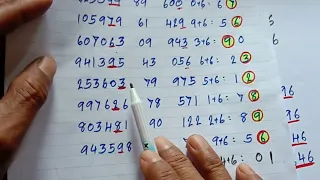 89 600 0+6: 6
105919 61 429 9+6: 5 6 5
607063 09 943 3+6: 9 0 6
941395 43 056 6+6: 2 3
253603 79 975 5+6: 1 2
997626 78 571 1+6: 7 8 96
803481 90 122 2+6: 8 9 96
943598 9+6: 5 6 46
+6: 0 1 46